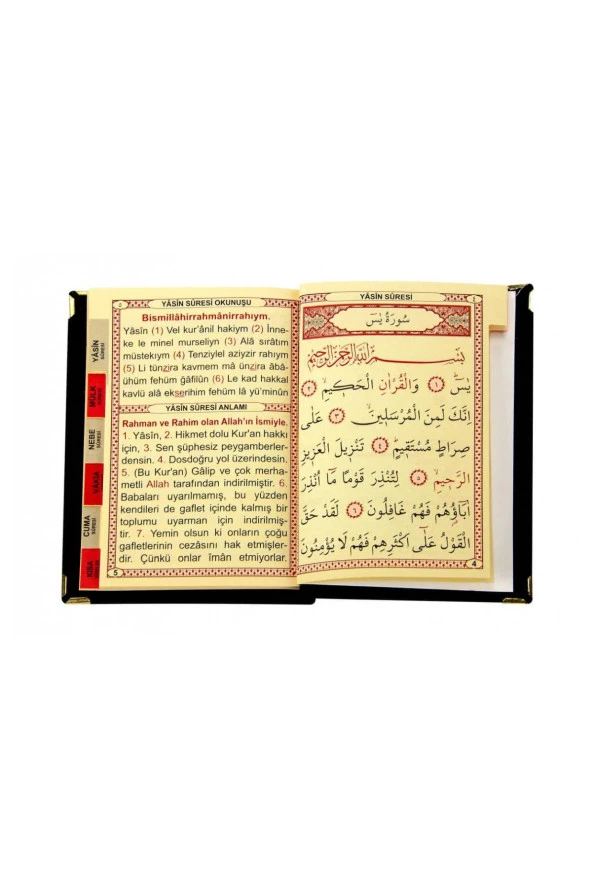 YÂSÎN SÛRESİ
سُورَةُ يٰسٓ
بِسْمِ اللّٰهِ الرَّحْمٰنِ الرَّحِيمِ
يٰسٓ ﴿١﴾ وَالْقُرْاٰنِ الْحَكِيمِ ﴿٢﴾
اِنَّكَ لَمِنَ الْمُرْسَلِينَ ﴿٣﴾ عَلٰى
صِرَاطٍ مُسْتَقِيمٍ ﴿٤﴾ تَنْزِيلَ الْعَزِيزِ
الرَّحِيمِ ﴿٥﴾ لِتُنْذِرَ قَوْمًا مَٓا اُنْذِرَ
اٰبَٓاؤُ۬هُمْ فَهُمْ غَافِلُونَ ﴿٦﴾ لَقَدْ حَقَّ
الْقَوْلُ عَلٰٓى اَكْثَرِهِمْ فَهُمْ لَا يُؤْمِنُونَ
4
YÂSÎN SÛRESİ OKUNUŞU
Bismillâhirrahmânirrahıym.
Yâsîn (1) Vel kur'ânil hakiym (2) İnne-
ke le minel murseliyn (3) Alâ sırâtım
müstekıym (4) Tenziylel aziyzir rahıym
(5) Li tünzira kavmem mâ ünzira âbâ-
ühüm fehüm gâfilûn (6) Le kad hakkal
kavlü alâ ekserihim fehüm lâ yü'minûn
YÂSÎN SÛRESİ ANLAMI
Rahman ve Rahim olan Allah'ın İsmiyle.
1. Yâsîn, 2. Hikmet dolu Kur'an hakkı
için, 3. Sen şüphesiz peygamberler-
densin. 4. Dosdoğru yol üzerindesin.
5. (Bu Kur'an) Gâlip ve çok merha-
metli Allah tarafından indirilmiştir. 6.
Babaları uyarılmamış, bu yüzden
kendileri de gaflet içinde kalmış bir
toplumu uyarman için indirilmiş-
tir. 7. Yemin olsun ki onların çoğu
gafletlerinin cezâsını hak etmişler-
dir. Çünkü onlar îman etmiyorlar.
5
YÂSİN
SÛRESİ
MÜLK
NEBE
SÛRESİ
VÂKIA
CUMA
SÛRESİ
KISA